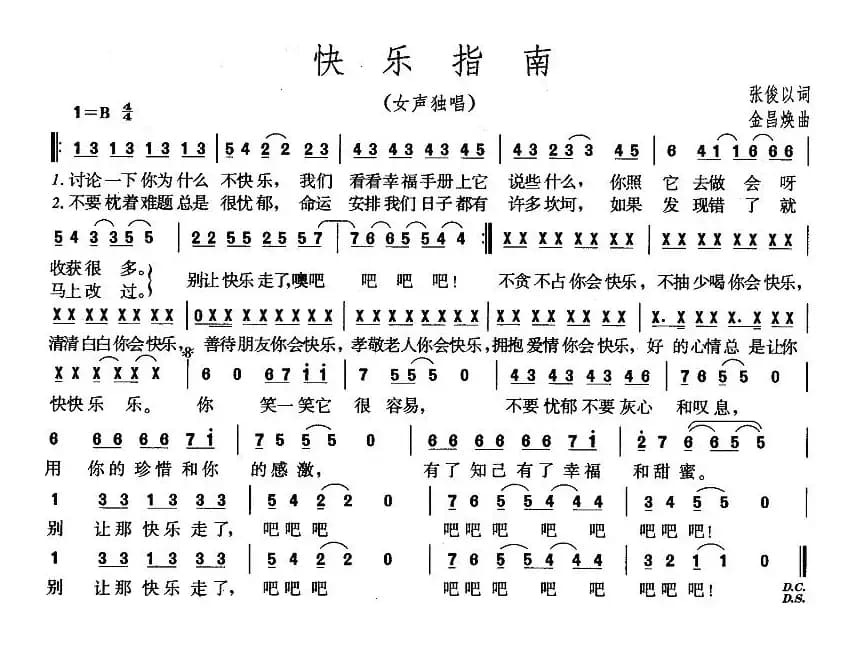 快乐指南
（女声独唱）
1=B 4/4
张俊以词
金昌焕曲
13 13 13 13 | 54 2 2 23 | 43 43 43 45 | 43 23 3 45 | 6 41 16 66
1. 讨论一下你为什么 不快乐，我们 看看幸福手册上它 说些什么，你照 它 去做会呀
2. 不要枕着难题总是 很忧郁，命运 安排我们日子都有 许多坎坷，如果 发 现错了就
54 33 55 | 22 55 25 57 | 76 65 54 4 :‖ XX XX XX XX | XX XX XX XX
收获很多。 别让快乐走了，噢吧 吧 吧 吧！ 不贪不占你会快乐，不抽少喝你会快乐，
马上改过。
XX XX XX XX | 0X XX XX XX | XX XX XX XX | XX XX XX XX | X. X XX X. X XX
清清白白你会快乐，善待朋友你会快乐，孝敬老人你会快乐，拥抱爱情你会快乐，好 的心情总是让你
XX XX X | 6 0 67 i i | 7 5 5 5 0 | 43 43 43 46 | 76 5 5 0
快快乐 乐。 你 笑一笑它 很 容易， 不要忧郁不要灰心 和叹息，
6 66 66 7i | 75 5 5 0 | 66 66 66 7i | 27 66 55
用 你的珍惜和你 的感激， 有了知己有了幸福 和甜蜜。
1 33 13 33 | 54 2 2 0 | 76 55 54 44 | 34 5 5 0
别 让那快乐走了， 吧吧吧 吧吧 吧 吧 吧吧吧！
1 33 13 33 | 54 2 2 0 | 76 55 54 44 | 32 1 1 0 ‖
别 让那快乐走了， 吧吧吧 吧吧 吧 吧 吧吧吧！
D.C.
D.S.